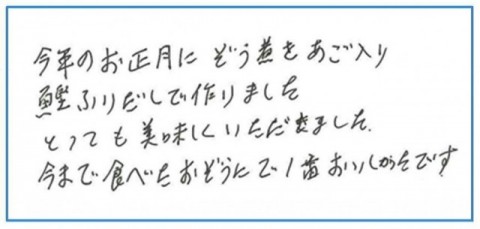 今年のお正月に ぞう煮をあご入り
鰹ふりだしで作りました
とっても美味しくいただきました。
今まで食べたおぞうにで1番おいしかったです